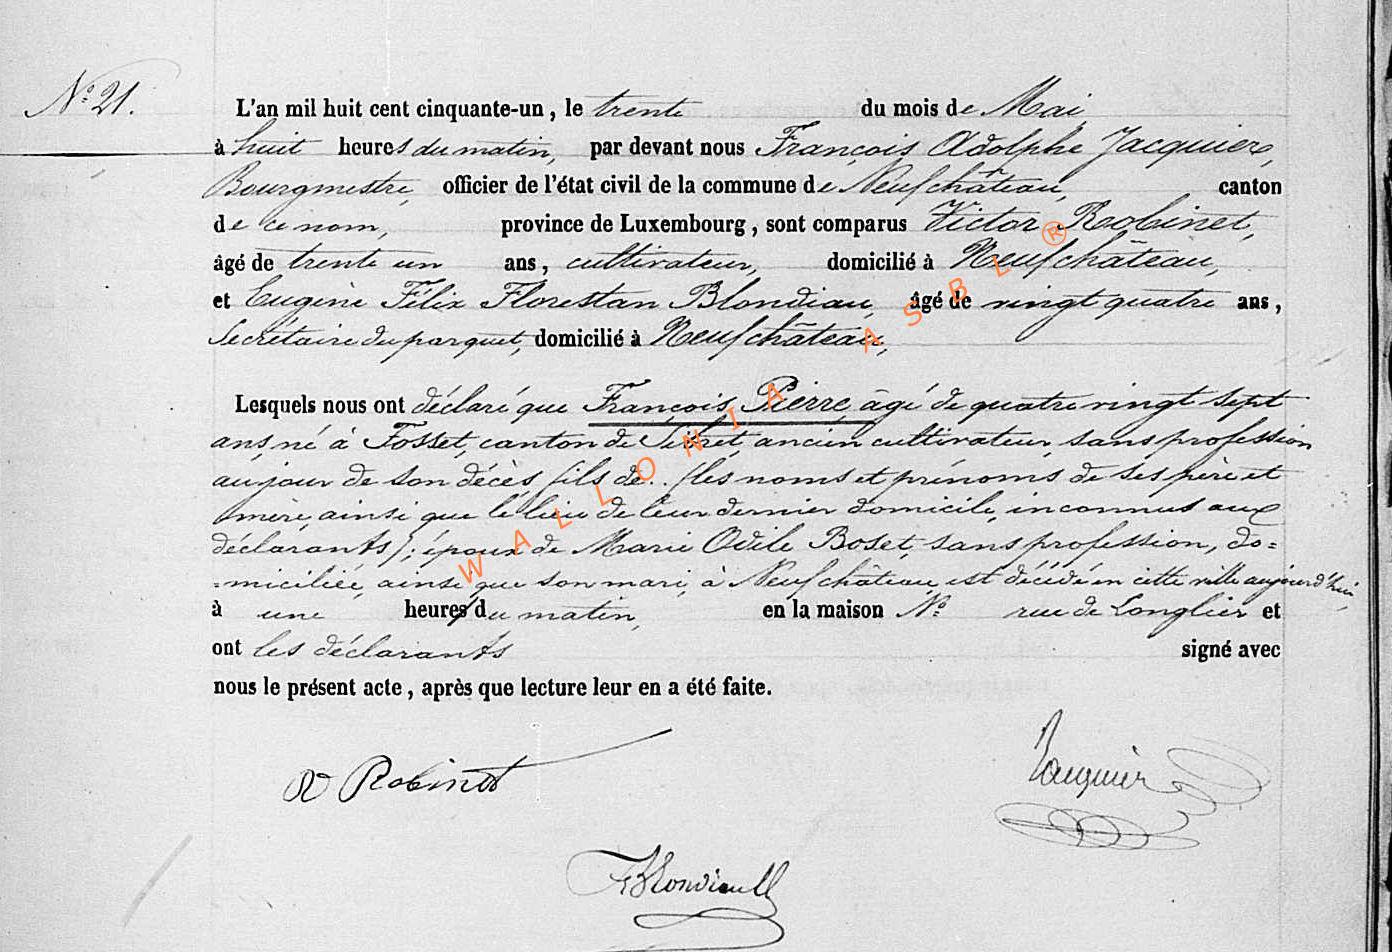 N° 21.
L'an mil huit cent cinquante-un, le trente du mois de Mai,
à huit heures du matin, par devant nous François Adolphe Jacquier,
Bourgmestre, officier de l'état civil de la commune de Neufchâteau, canton
de ce nom, province de Luxembourg, sont comparus Victor Robinet,
âgé de trente un ans, cultivateur, domicilié à Neufchâteau,
et Eugène Félix Florestan Blondiau, âgé de vingt quatre ans,
Secrétaire du parquet, domicilié à Neufchâteau,
Lesquels nous ont déclaré que François, Pierre, âgé de quatre vingt sept
ans, né à Fosset, canton de Sibret, ancien cultivateur, sans profession
au jour de son décès, fils de.. (les noms et prénoms de ses père et
mère, ainsi que le lieu de leur dernier domicile, inconnus aux
déclarants); époux de Marie Odile Boset, sans profession, do=
=miciliée, ainsi que son mari, à Neufchâteau, est décédé en cette ville aujourd'hui,
à une heures du matin, en la maison N° rue de Longlier et
ont les déclarants signé avec
nous le présent acte, après que lecture leur en a été faite.
V Robinet
Jacquier
F Blondiau
WALLONIA ASBL ®